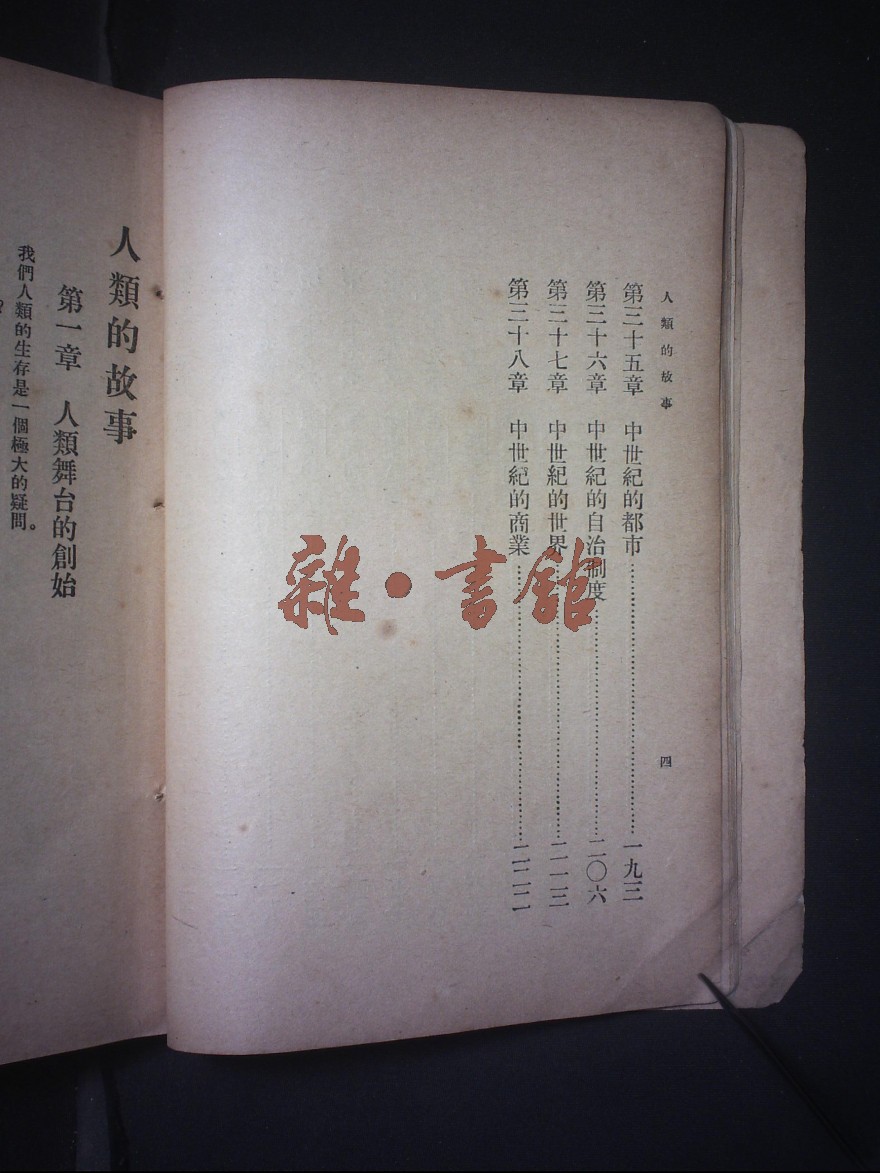 人類的故事
四
第三十五章 中世紀的都市⋯⋯⋯⋯⋯⋯一九三
第三十六章 中世紀的自治制度⋯⋯⋯⋯⋯⋯二〇六
第三十七章 中世紀的世界⋯⋯⋯⋯⋯⋯二一三
第三十八章 中世紀的商業⋯⋯⋯⋯⋯⋯二二二
人類的故事
第一章 人類舞台的創始
我們人類的生存是一個極大的疑問。
雜·書館